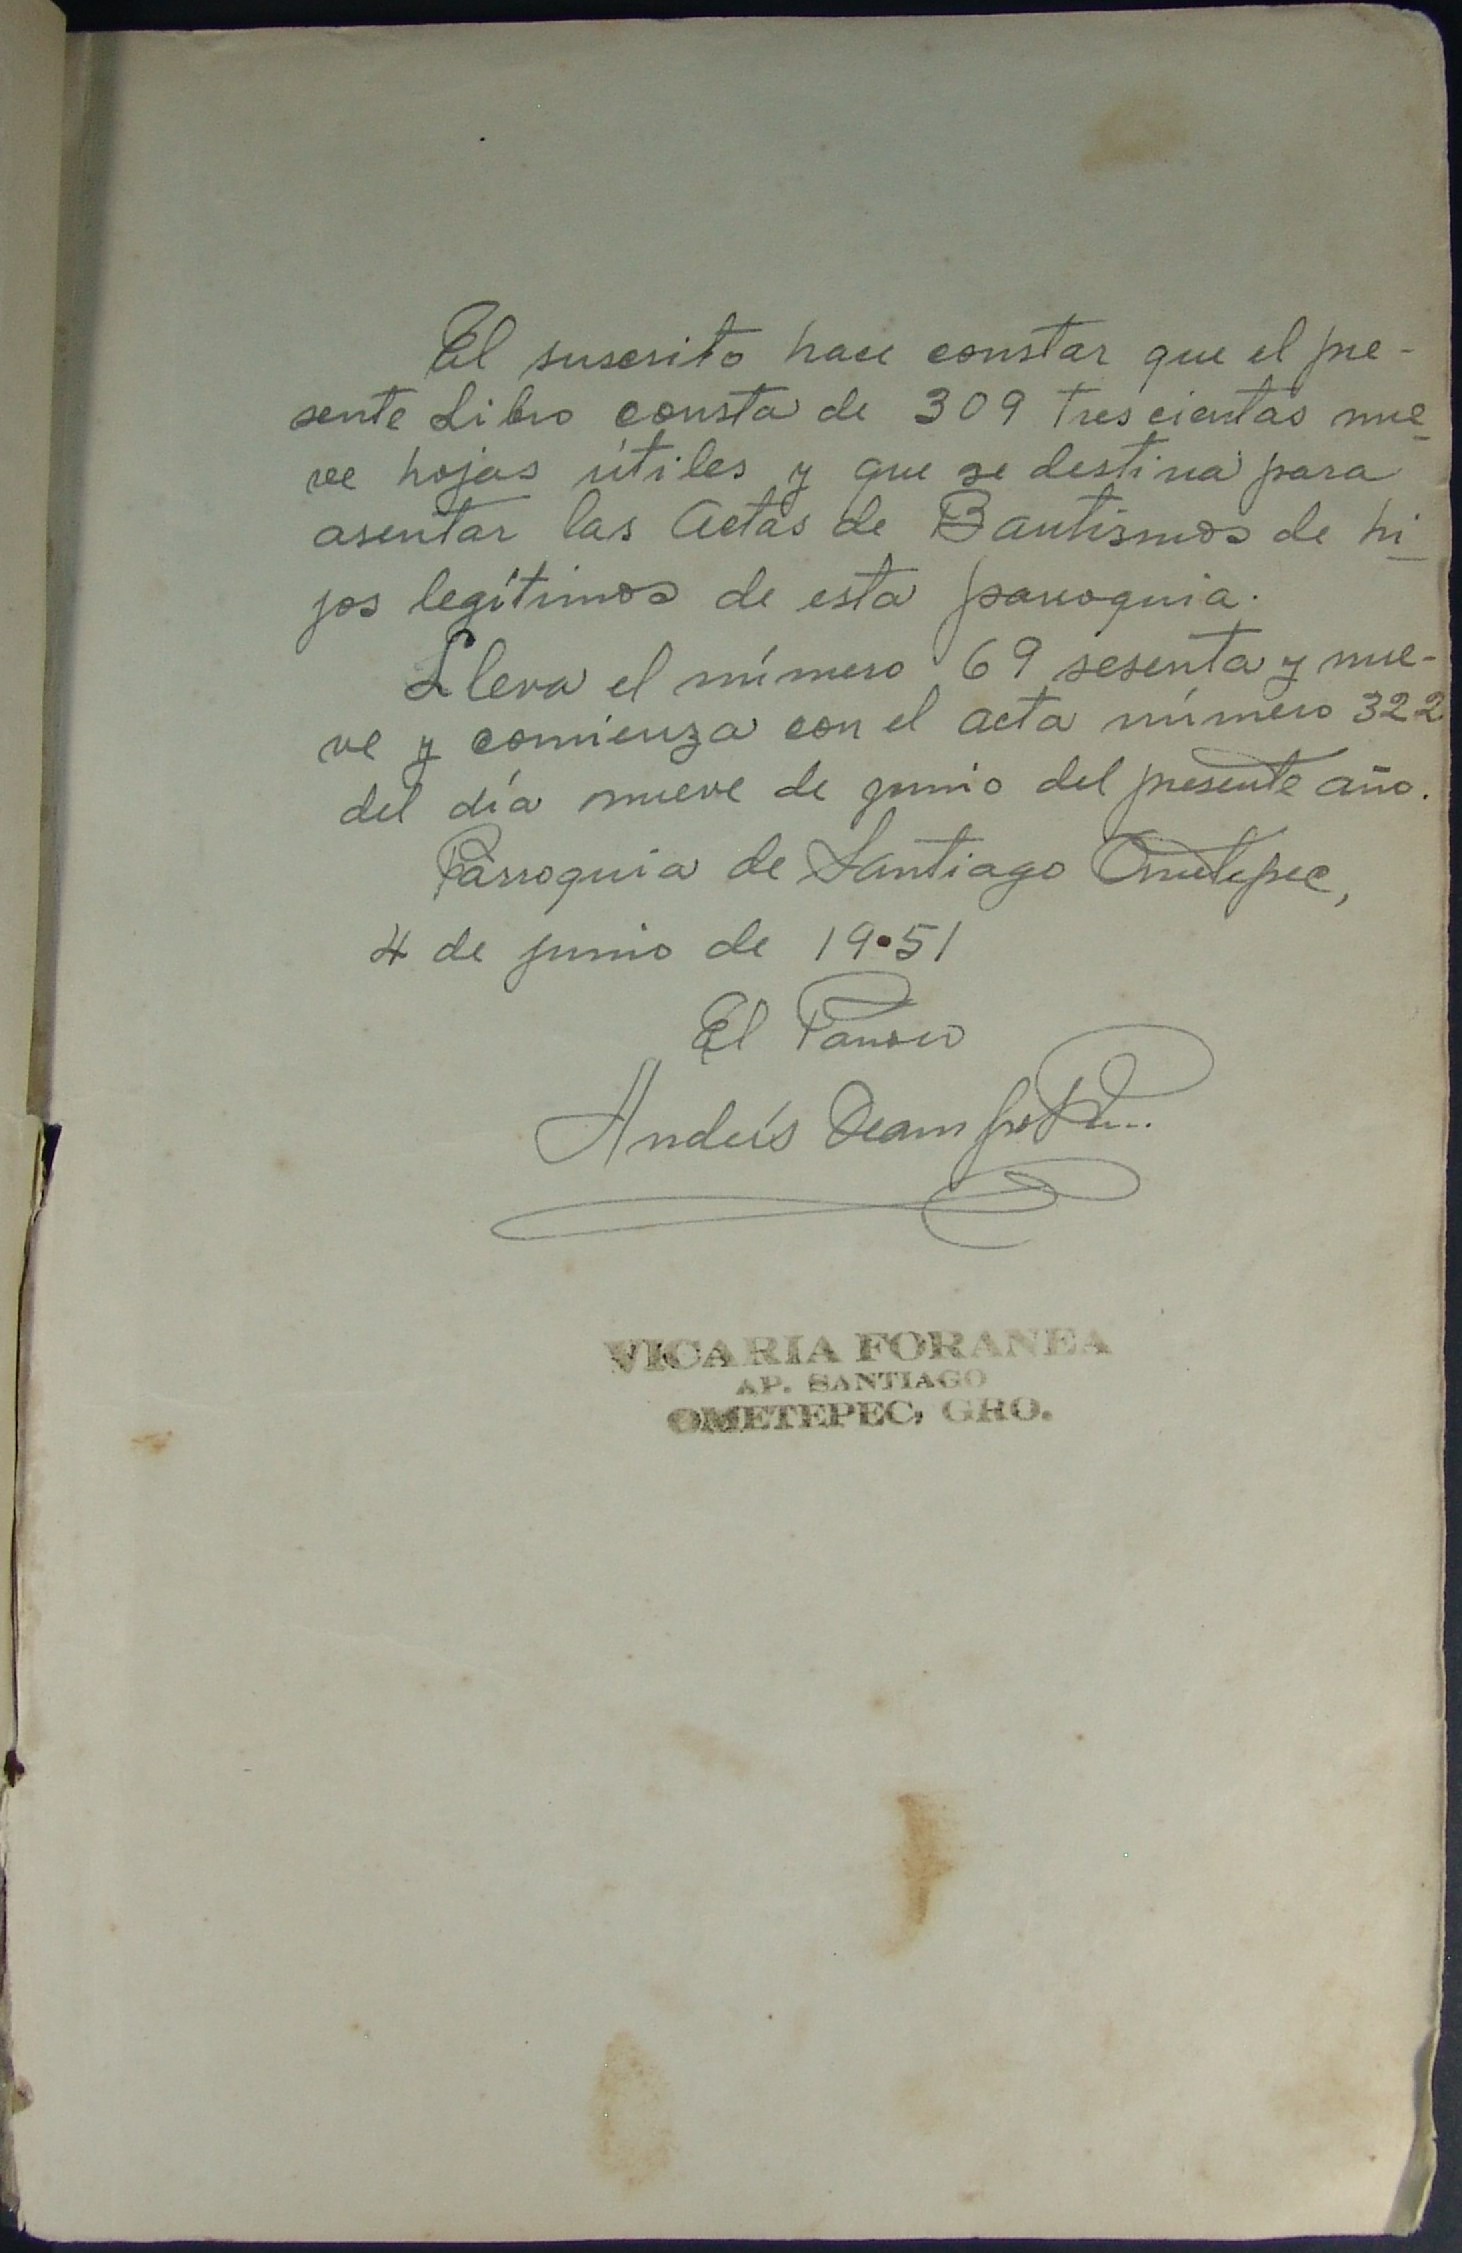 El suscrito hace constar que el pre-
sente Libro consta de 309 trescientas nue
ve hojas útiles y que se destina para
asentar las Actas de Bautismos de hi
jos legítimos de esta parroquia.
Lleva el número 69 sesenta y nue-
ve y comienza con el acta número 322
del día nueve de junio del presente año.
Parroquia de Santiago Ometepec,
4 de junio de 19•51
El Párroco
Andrés
VICARIA FORANEA
AP. SANTIAGO
OMETEPEC, GRO.